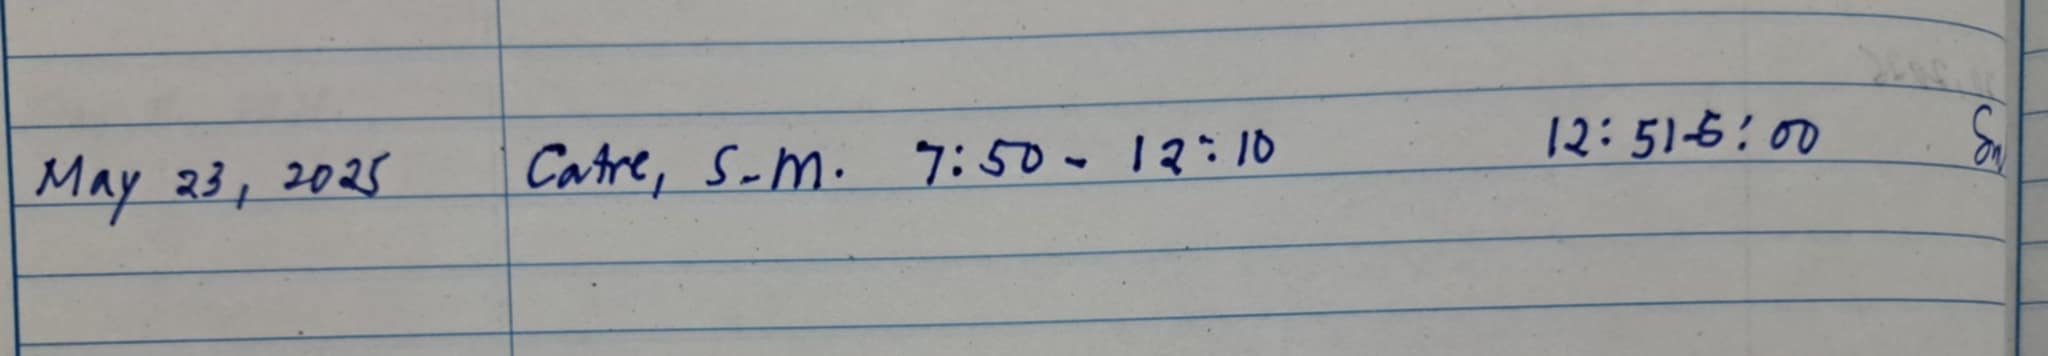 May 23, 2025 Catre, S.M. 7:50 - 12:10 12:51-5:00